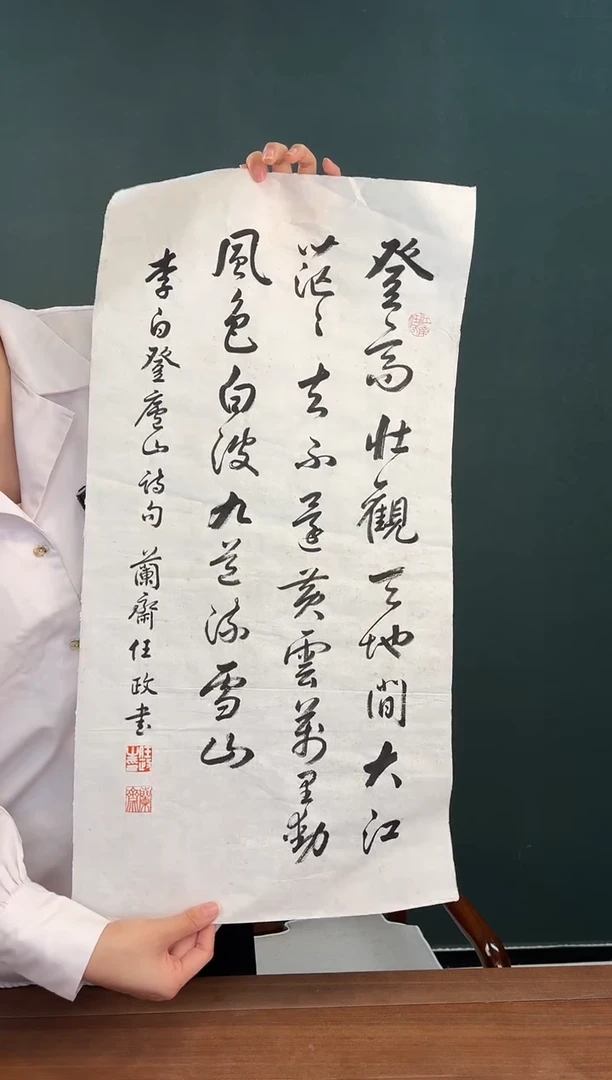 登高壯觀天地間大江
茫〻去不還黃雲萬里動
風色白波九道流雪山
李白登廬山詩句 蘭齋任政書